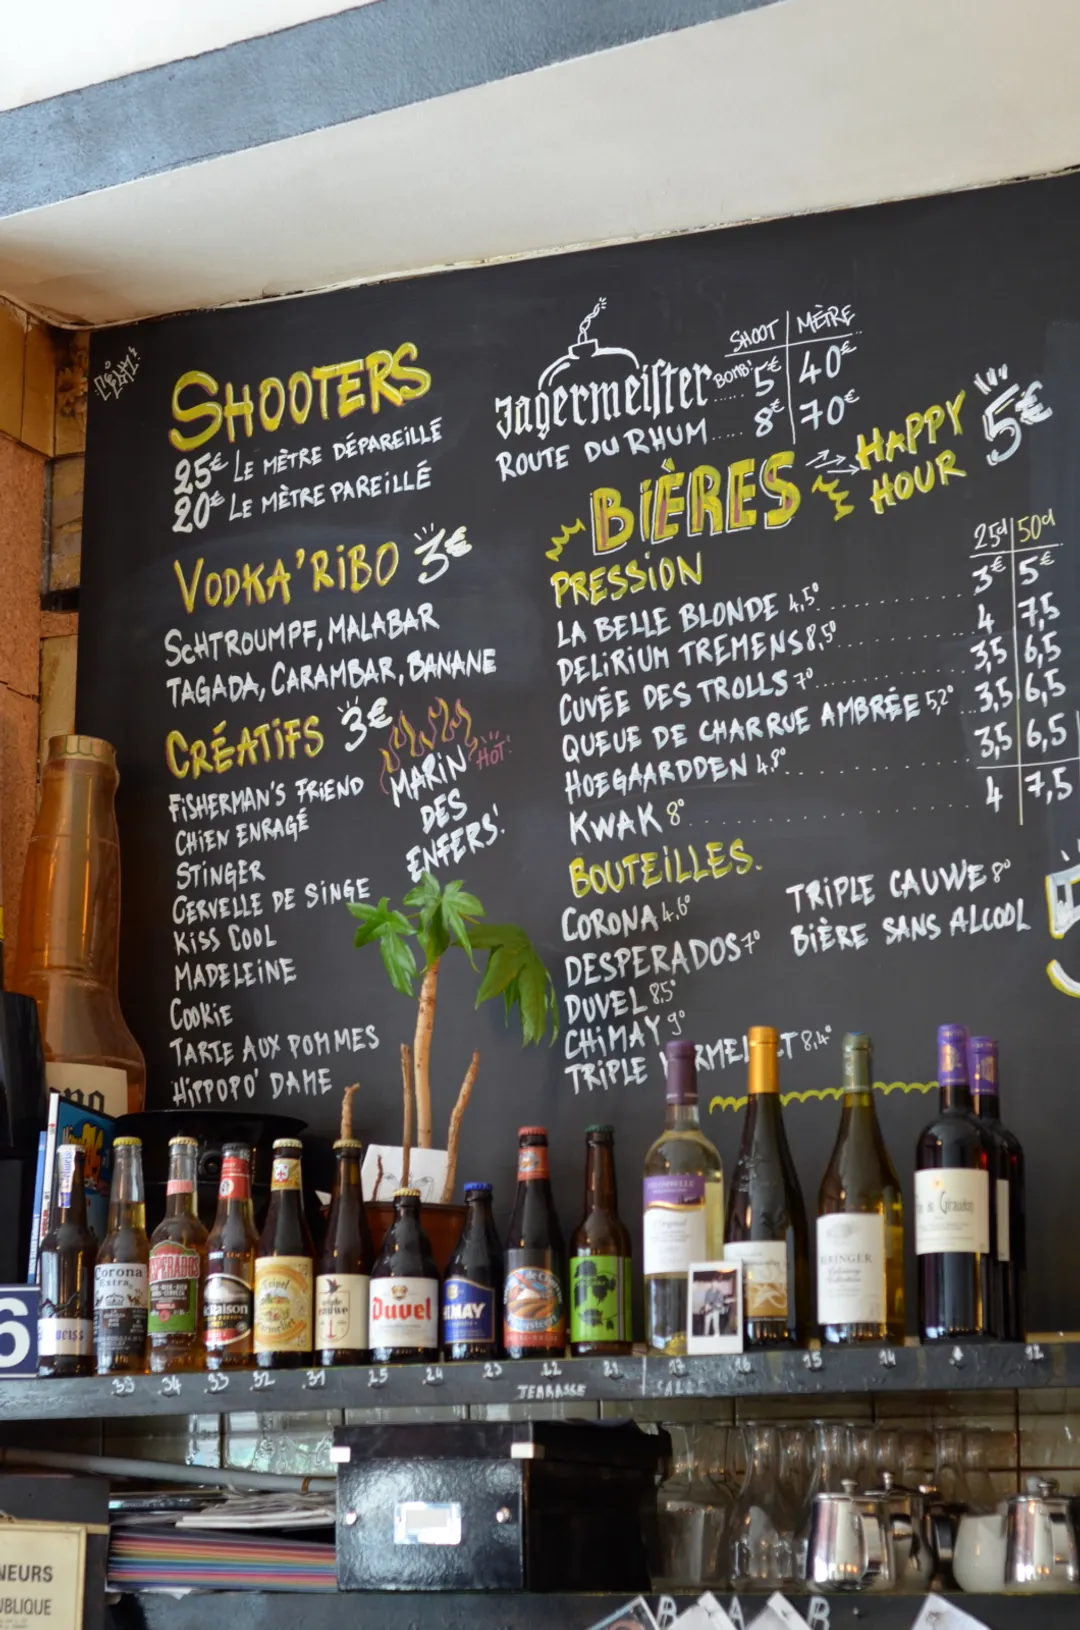 SHOOTERS
25€ LE MÈTRE DÉPAREILLÉ
20€ LE MÈTRE PAREILLÉ
VODKA'RIBO 3€
SCHTROUMPF, MALABAR
TAGADA, CARAMBAR, BANANE
CRÉATIFS 3€
FISHERMAN'S FRIEND
CHIEN ENRAGÉ
STINGER
CERVELLE DE SINGE
KISS COOL
MADELEINE
COOKIE
TARTE AUX POMMES
HIPPOPO' DAME
HOT!
MARIN
DES
ENFERS!
SHOOT MÈTRE
Jagermeister BOMB! ..... 5€ 40€
ROUTE DU RHUM ..... 8€ 70€
BIÈRES
HAPPY
HOUR
5€
25cl 50cl
PRESSION
LA BELLE BLONDE 4,5° 3€ 5€
DELIRIUM TREMENS 8,5° 4 7,5
CUVÉE DES TROLLS 7° 3,5 6,5
QUEUE DE CHARRUE AMBRÉE 5,2° 3,5 6,5
HOEGAARDDEN 4,8° 3,5 6,5
KWAK 8° 4 7,5
BOUTEILLES.
CORONA 4,6°
DESPERADOS 7°
DUVEL 8,5°
CHIMAY 9°
TRIPLE
8,4°
TRIPLE CAUWE 8°
BIÈRE SANS ALCOOL
Corona
Extra
Duvel
35 34 33 32 31 25 24 23 22 21 17 16 15 14
TERRASSE
6
NEURS
UBLIQUE
B A R